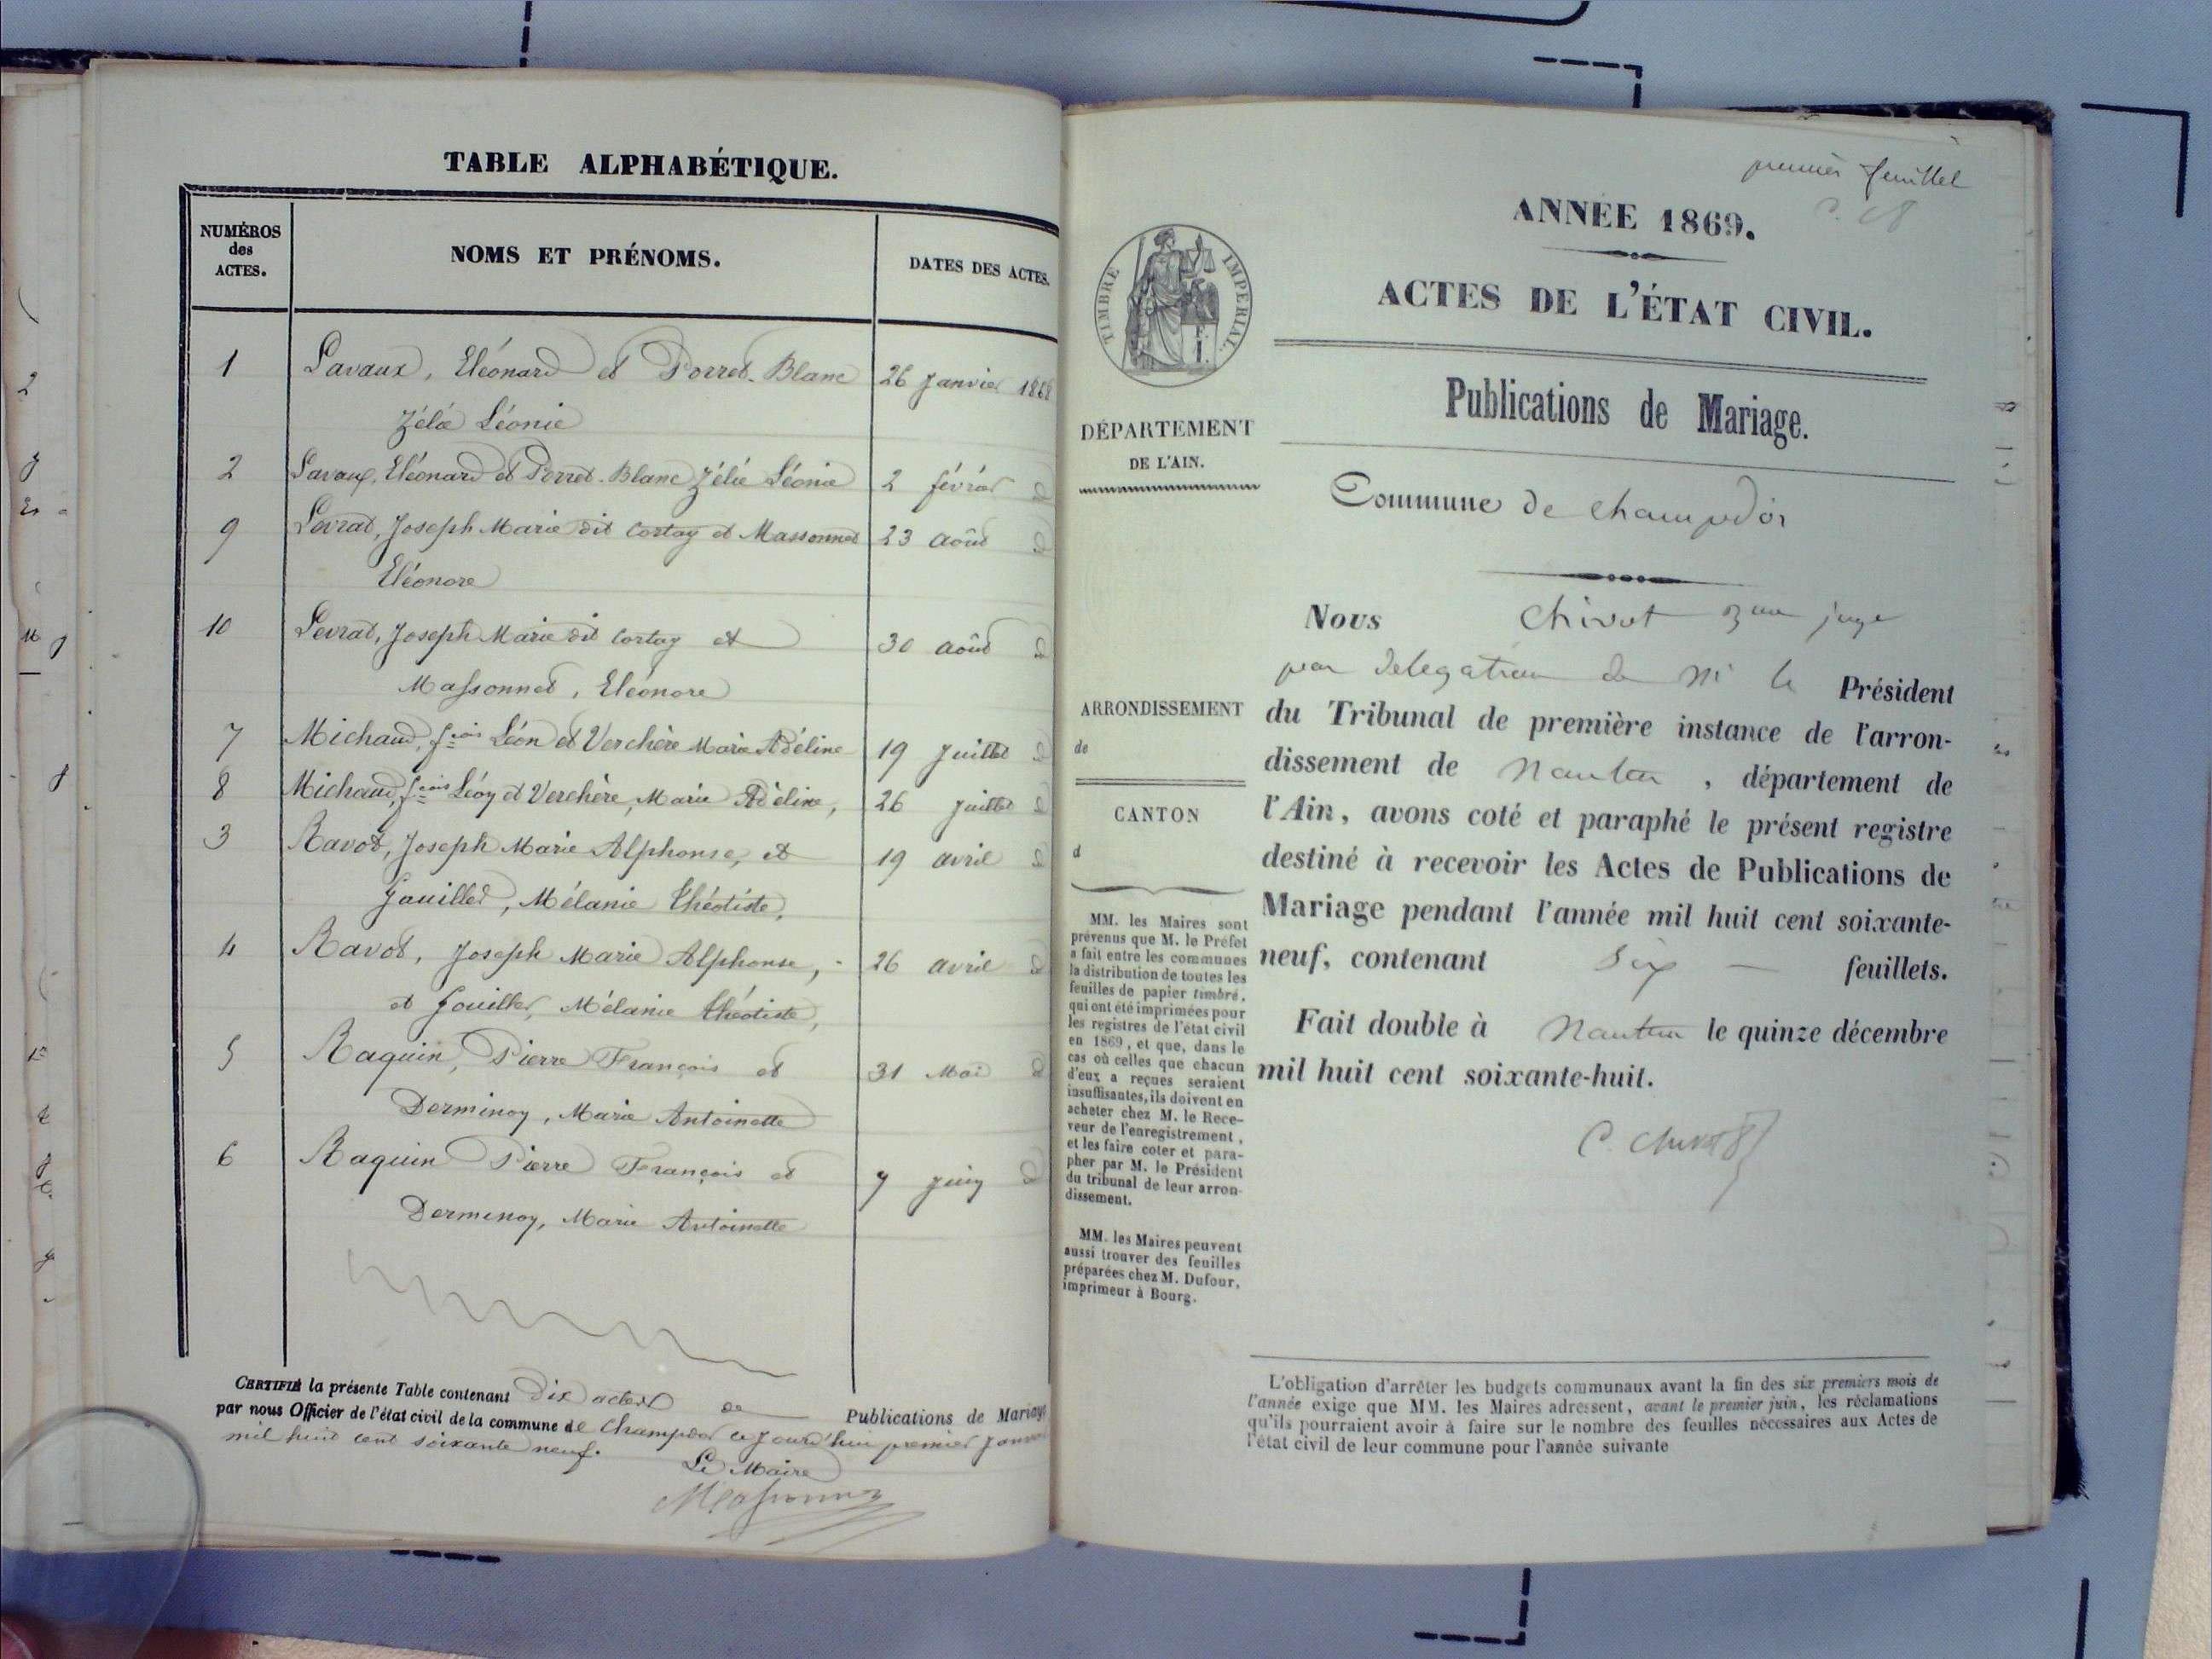 TABLE ALPHABÉTIQUE.
NUMÉROS des ACTES.
NOMS ET PRÉNOMS.
DATES DES ACTES.
1 Lavaux, Eléonard et Porret-Blanc 26 Janvier 1868
Zélie Léonie
2 Lavaux, Eléonard et Perret-Blanc Zélie Léonie 2 février d
9 Levrat, Joseph Marie dit Cortay et Massonnet 23 août d
Eléonore
10 Levrat, Joseph Marie dit Cortay et 30 août d
Massonnet, Eléonore
7 Michaud, fçois Léon et Verchère Marie Adéline 19 Juillet d
8 Michaud, fçois Léon et Verchère, Marie Adéline, 26 Juillet d
3 Ravot, Joseph Marie Alphonse, et 19 avril d
Gouillet, Mélanie théotiste,
4 Ravot, Joseph Marie Alphonse, 26 avril d
et Gouillet, Mélanie théotiste,
5 Raquin, Pierre François et 31 Mai d
Derminoy, Marie Antoinette
6 Raquin Pierre François et 7 Juin d
Derminoy, Marie Antoinette
CERTIFIÉ la présente Table contenant Dix actes de Publications de Mariage
par nous Officier de l'état civil de la commune de Champdor ce jourd'hui premier Janvier
mil huit cent soixante neuf.
Le Maire
Massonnet
premier feuillet
ANNÉE 1869.
ACTES DE L'ÉTAT CIVIL.
TIMBRE IMPERIAL
Publications de Mariage.
DÉPARTEMENT
DE L'AIN.
Commune de Champdor
Nous Chivot 3me juge
par delegation de M le Président
du Tribunal de première instance de l'arron-
dissement de Nantua, département de
l'Ain, avons coté et paraphé le présent registre
destiné à recevoir les Actes de Publications de
Mariage pendant l'année mil huit cent soixante-
neuf, contenant Six feuillets.
Fait double à Nantua le quinze décembre
mil huit cent soixante-huit.
C. Chivot
ARRONDISSEMENT
de
CANTON
d
MM. les Maires sont
prévenus que M. le Préfet
a fait entre les communes
la distribution de toutes les
feuilles de papier timbré,
qui ont été imprimées pour
les registres de l'état civil
en 1869, et que, dans le
cas où celles que chacun
d'eux a reçues seraient
insuffisantes, ils doivent en
acheter chez M. le Rece-
veur de l'enregistrement,
et les faire coter et para-
pher par M. le Président
du tribunal de leur arron-
dissement.
MM. les Maires peuvent
aussi trouver des feuilles
préparées chez M. Dufour,
imprimeur à Bourg.
L'obligation d'arrêter les budgets communaux avant la fin des six premiers mois de
l'année exige que MM. les Maires adressent, avant le premier juin, les réclamations
qu'ils pourraient avoir à faire sur le nombre des feuilles nécessaires aux Actes de
l'état civil de leur commune pour l'année suivante